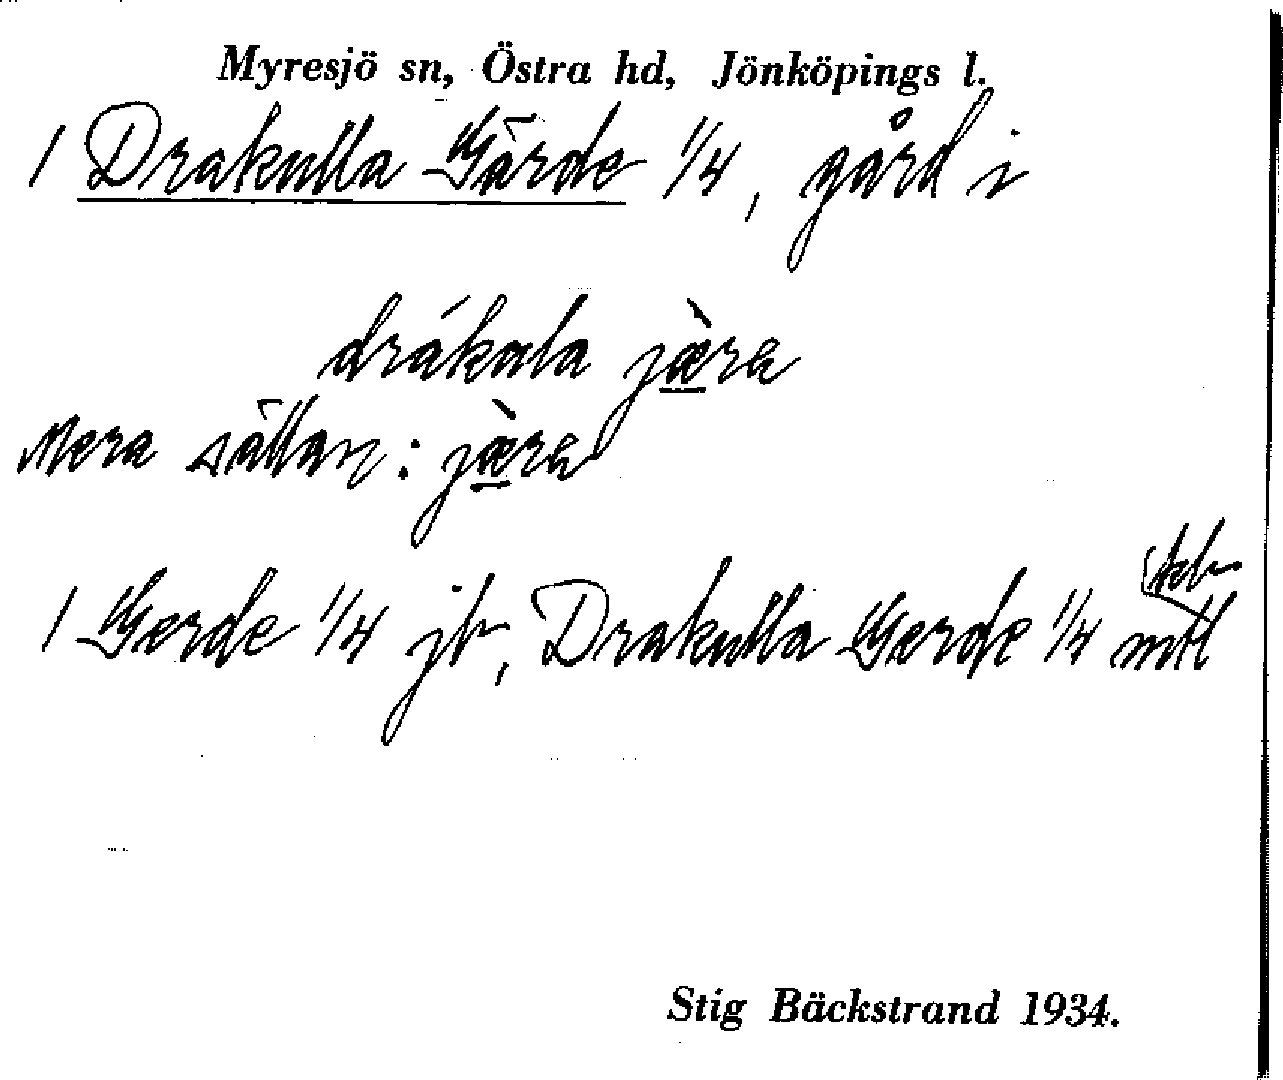 Myresjö sn, Östra hd, Jönköpings l.
1 Drakulla Gärde 1/4, gård i
drákula jæ̀ra
Mera sällan: jæ̀ra
1 Gerde 1/4 jb, Drakulla Gerde 1/4 mtl
Stig Bäckstrand 1934.